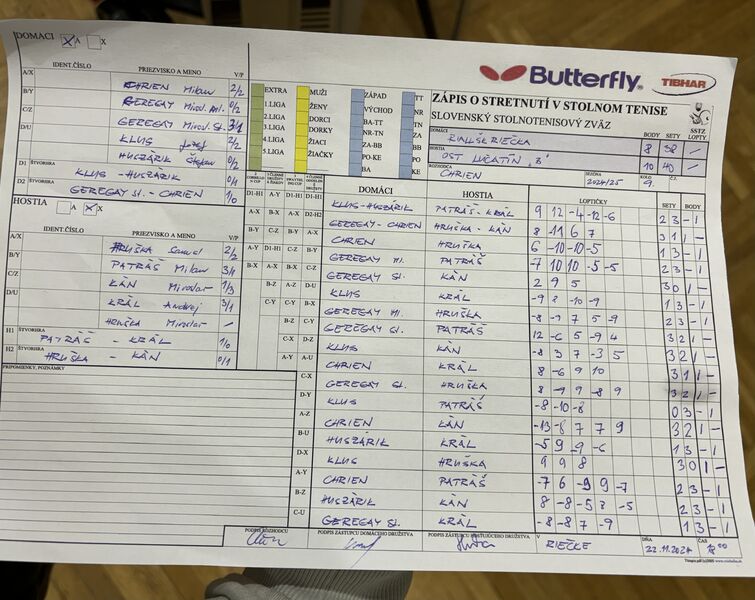 DOMACI X A X
IDENT.ČÍSLO PRIEZVISKO A MENO V/P
A/X CHRIEN Milan 2/2
B/Y GEREGAY Mirosl. ml. 0/2
C/Z GEREGAY Mirosl. St. 3/1
D/U KLUS Jozef 2/2
HUSZÁRIK 0/2
D1 ŠTVORHRA KLUS - HUSZÁRIK 0/1
D2 GEREGAY St. - CHRIEN 1/0
HOSTIA A X X
IDENT.ČÍSLO PRIEZVISKO A MENO V/P
A/X HRUŠKA Samuel 2/2
B/Y PATRÁŠ Milan 3/1
C/Z KÁN Miroslav 1/3
D/U KRÁL Andrej 3/1
HRUŠKA Miroslav —
H1 ŠTVORHRA PATRÁŠ - KRÁL 1/0
H2 ŠTVORHRA HRUŠKA - KÁN 0/1
PRIPOMIENKY, POZNÁMKY
EXTRA
1.LIGA
2.LIGA
3.LIGA
4.LIGA
5.LIGA
MUŽI
ŽENY
DORCI
DORKY
ŽIACI
ŽIAČKY
ZÁPAD
VÝCHOD
BA-TT
NR-TN
ZA-BB
PO-KE
BA
TT
NR
TN
ZA
BB
PO
KE
Butterfly TIBHAR
ZÁPIS O STRETNUTÍ V STOLNOM TENISE
SLOVENSKÝ STOLNOTENISOVÝ ZVÄZ
BODY SETY LOPTY
SSTZ
DOMÁCI RIEČKA 8 38 —
HOSTIA OST LUČATÍN "B" 10 40 —
ROZHODCA CHRIEN SEZÓNA 2024/25 KOLO 9. Č.Z.
DOMÁCI HOSTIA LOPTIČKY SETY BODY
D1-H1 KLUS-HUSZÁRIK PATRÁŠ-KRÁL 9 12 -4 -12 -6 2 3 - 1
D2-H2 GEREGAY-CHRIEN HRUŠKA-KÁN 8 -11 6 7 3 1 1 -
A-X CHRIEN HRUŠKA 6 -10 -10 -5 1 3 - 1
B-Y GEREGAY Ml. PATRÁŠ -7 10 10 -5 -5 2 3 - 1
C-Z GEREGAY St. KÁN 2 9 5 3 0 1 -
D-U KLUS KRÁL -9 8 -10 -9 1 3 - 1
B-X GEREGAY Ml. HRUŠKA 2 3 - 1
C-Y GEREGAY St. PATRÁŠ 12 -6 5 -9 4 3 2 1 -
D-Z KLUS KÁN -8 3 7 -3 5 3 2 1 -
A-U CHRIEN KRÁL 8 -6 9 10 3 1 1 -
C-X GEREGAY St. HRUŠKA 3 2 1 -
D-Y KLUS PATRÁŠ -8 -10 -8 0 3 - 1
A-Z CHRIEN KÁN -13 -8 7 7 9 3 2 1 -
B-U HUSZÁRIK KRÁL -5 9 -9 -6 1 3 - 1
D-X KLUS HRUŠKA 9 9 8 3 0 1 -
A-Y CHRIEN PATRÁŠ -7 6 -9 9 -7 2 3 - 1
B-Z HUSZÁRIK KÁN 8 -8 -5 8 -5 2 3 - 1
C-U GEREGAY St. KRÁL -8 -8 7 -9 1 3 - 1
PODPIS ROZHODCU PODPIS ZÁSTUPCU DOMÁCEHO DRUŽSTVA PODPIS ZÁSTUPCU HOSŤUJÚCEHO DRUŽSTVA V RIEČKE DŇA 22.11.2024 ČAS 18:00